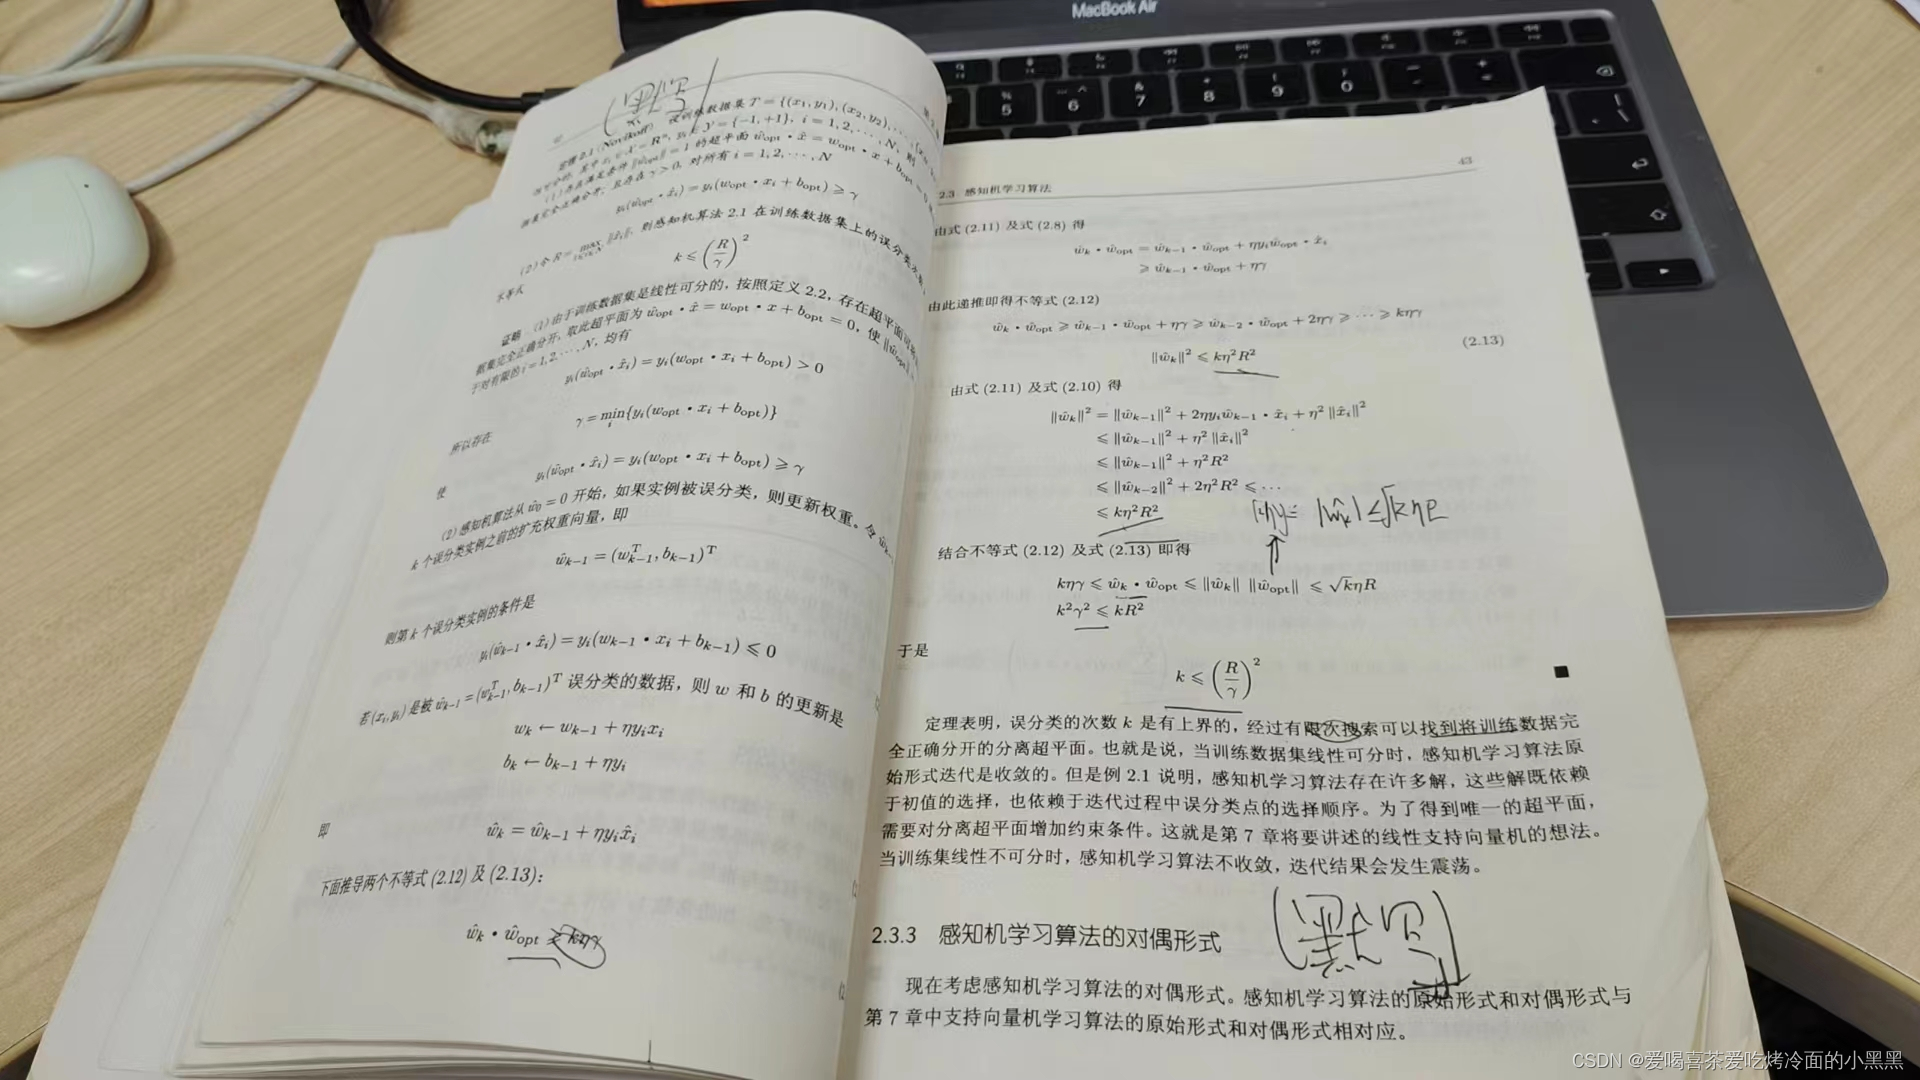 MacBook Air
(默写)
定理 2.1 (Novikoff) 设训练数据集 T = {(x₁, y₁), (x₂, y₂), ⋯
其中 xᵢ ∈ X = Rⁿ, yᵢ ∈ Y = {−1, +1}, i = 1, 2, ⋯, N, 则
(1) 存在满足条件 ‖ŵopt‖ = 1 的超平面 ŵopt • x̂ = wopt • x + bopt = 0
完全正确分开, 且存在 γ > 0, 对所有 i = 1, 2, ⋯, N
yᵢ(ŵopt • x̂ᵢ) = yᵢ(wopt • xᵢ + bopt) ⩾ γ
(2) 令 R = max ‖x̂ᵢ‖, 则感知机算法 2.1 在训练数据集上的误分类次数
不等式
k ⩽ (R/γ)²
证明 (1) 由于训练数据集是线性可分的, 按照定义 2.2, 存在超平面可将
据集完全正确分开, 取此超平面为 ŵopt • x̂ = wopt • x + bopt = 0, 使 ‖ŵopt‖
于对有限的 i = 1, 2, ⋯, N, 均有
yᵢ(ŵopt • x̂ᵢ) = yᵢ(wopt • xᵢ + bopt) > 0
所以存在
γ = min{yᵢ(wopt • xᵢ + bopt)}
i
使
yᵢ(ŵopt • x̂ᵢ) = yᵢ(wopt • xᵢ + bopt) ⩾ γ
(2) 感知机算法从 ŵ₀ = 0 开始, 如果实例被误分类, 则更新权重。令 ŵₖ₋
k 个误分类实例之前的扩充权重向量, 即
ŵₖ₋₁ = (wᵀₖ₋₁, bₖ₋₁)ᵀ
则第 k 个误分类实例的条件是
yᵢ(ŵₖ₋₁ • x̂ᵢ) = yᵢ(wₖ₋₁ • xᵢ + bₖ₋₁) ⩽ 0
若 (xᵢ, yᵢ) 是被 ŵₖ₋₁ = (wᵀₖ₋₁, bₖ₋₁)ᵀ 误分类的数据, 则 w 和 b 的更新是
wₖ ← wₖ₋₁ + ηyᵢxᵢ
bₖ ← bₖ₋₁ + ηyᵢ
即
ŵₖ = ŵₖ₋₁ + ηyᵢx̂ᵢ
下面推导两个不等式 (2.12) 及 (2.13):
ŵₖ • ŵopt ⩾ kηγ
2.3 感知机学习算法 43
由式 (2.11) 及式 (2.8) 得
ŵₖ • ŵopt = ŵₖ₋₁ • ŵopt + ηyᵢŵopt • x̂ᵢ
⩾ ŵₖ₋₁ • ŵopt + ηγ
由此递推即得不等式 (2.12)
ŵₖ • ŵopt ⩾ ŵₖ₋₁ • ŵopt + ηγ ⩾ ŵₖ₋₂ • ŵopt + 2ηγ ⩾ ⋯ ⩾ kηγ
‖ŵₖ‖² ⩽ kη²R² (2.13)
由式 (2.11) 及式 (2.10) 得
‖ŵₖ‖² = ‖ŵₖ₋₁‖² + 2ηyᵢŵₖ₋₁ • x̂ᵢ + η² ‖x̂ᵢ‖²
⩽ ‖ŵₖ₋₁‖² + η² ‖x̂ᵢ‖²
⩽ ‖ŵₖ₋₁‖² + η²R²
⩽ ‖ŵₖ₋₂‖² + 2η²R² ⩽ ⋯
⩽ kη²R²
|ŵₖ| ≤ √kηR
结合不等式 (2.12) 及式 (2.13) 即得
kηγ ⩽ ŵₖ • ŵopt ⩽ ‖ŵₖ‖ ‖ŵopt‖ ⩽ √kηR
k²γ² ⩽ kR²
于是
k ⩽ (R/γ)² ■
定理表明, 误分类的次数 k 是有上界的, 经过有限次搜索可以找到将训练数据完
全正确分开的分离超平面。也就是说, 当训练数据集线性可分时, 感知机学习算法原
始形式迭代是收敛的。但是例 2.1 说明, 感知机学习算法存在许多解, 这些解既依赖
于初值的选择, 也依赖于迭代过程中误分类点的选择顺序。为了得到唯一的超平面,
需要对分离超平面增加约束条件。这就是第 7 章将要讲述的线性支持向量机的想法。
当训练集线性不可分时, 感知机学习算法不收敛, 迭代结果会发生震荡。
(默写)
2.3.3 感知机学习算法的对偶形式
现在考虑感知机学习算法的对偶形式。感知机学习算法的原始形式和对偶形式与
第 7 章中支持向量机学习算法的原始形式和对偶形式相对应。
CSDN @爱喝喜茶爱吃烤冷面的小黑黑